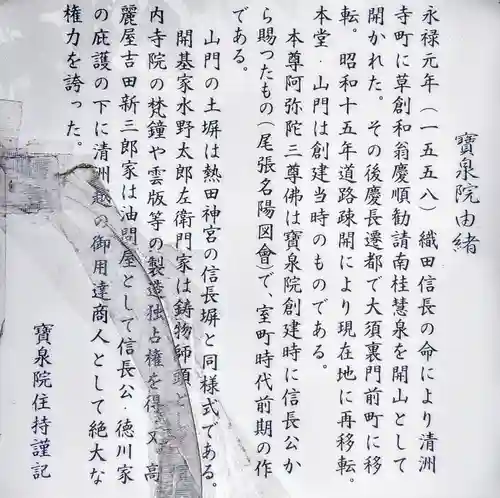 寶泉院由緒
永禄元年(一五五八)織田信長の命により清洲
寺町に草創和翁慶順勧請南桂慧泉を開山として
開かれた。その後慶長遷都で大須裏門前町に移
転。昭和十五年道路疎開により現在地に再移転。
本堂・山門は創建当時のものである。
本尊阿弥陀三尊佛は寶泉院創建時に信長公か
ら賜つたもの(尾張名陽図會)で、室町時代前期の作
である。
山門の土塀は熱田神宮の信長塀と同様式である。
開基家水野太郎左衛門家は鋳物師頭として
内寺院の梵鐘や雲版等の製造独占権を得又、高
麗屋吉田新三郎家は油問屋として信長公・徳川家
の庇護の下に清洲越の御用達商人として絶大な
権力を誇った。
寶泉院住持謹記